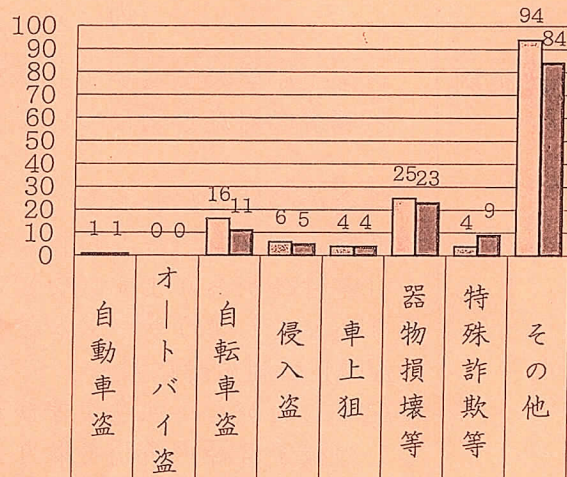 100
90
80
70
60
50
40
30
20
10
0
1 1
0 0
16 11
6 5
4 4
25 23
4 9
94 84
自動車盗
オートバイ盗
自転車盗
侵入盗
車上狙
器物損壊等
特殊詐欺等
その他